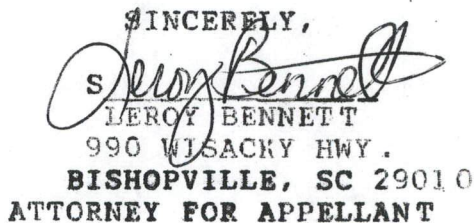 SINCERELY,
S Leroy Bennett
LEROY BENNETT
990 WISACKY HWY.
BISHOPVILLE, SC 29010
ATTORNEY FOR APPELLANT